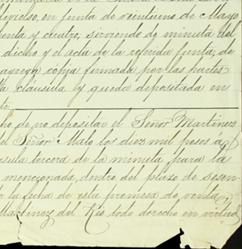 en junta de veintiuno de Mayo
y cuatro, sirviendo de minuta del
dicho y el acta de la segunda junta, de
copia firmada por las partes
clausula y quedó depositada en
de no depositar el Señor Martinez
el Señor Malo los diez mil pesos á
tercera de la minuta para la
mencionado, dentro del plazo de
la fecha de esta promesa de venta,
Martinez del Rio todo derecho en virtud